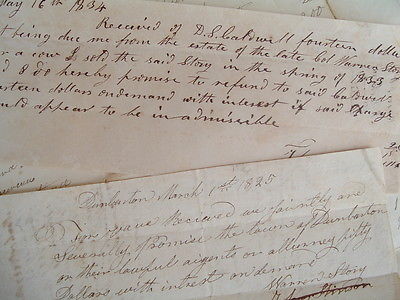 May 16th 1834
Received of D.S. Caldwell fourteen dollars
being due me from the estate of the late Col Warren Story
a cow I sold the said Story in the spring of 1833
I do hereby promise to refund to said Caldwell
fourteen dollars on demand with interest if said charge
should appear to be inadmissible
Dunbarton March 1st 1825
For value Recieved we jointly and
severally Promise the town of Dunbarton
or their lawful agents or attorney fifty
Dollars with interest on demand
Warren Story